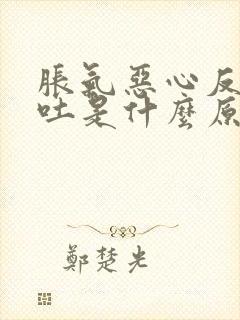 脹氣惡心反
吐是什麼原
鄭楚光